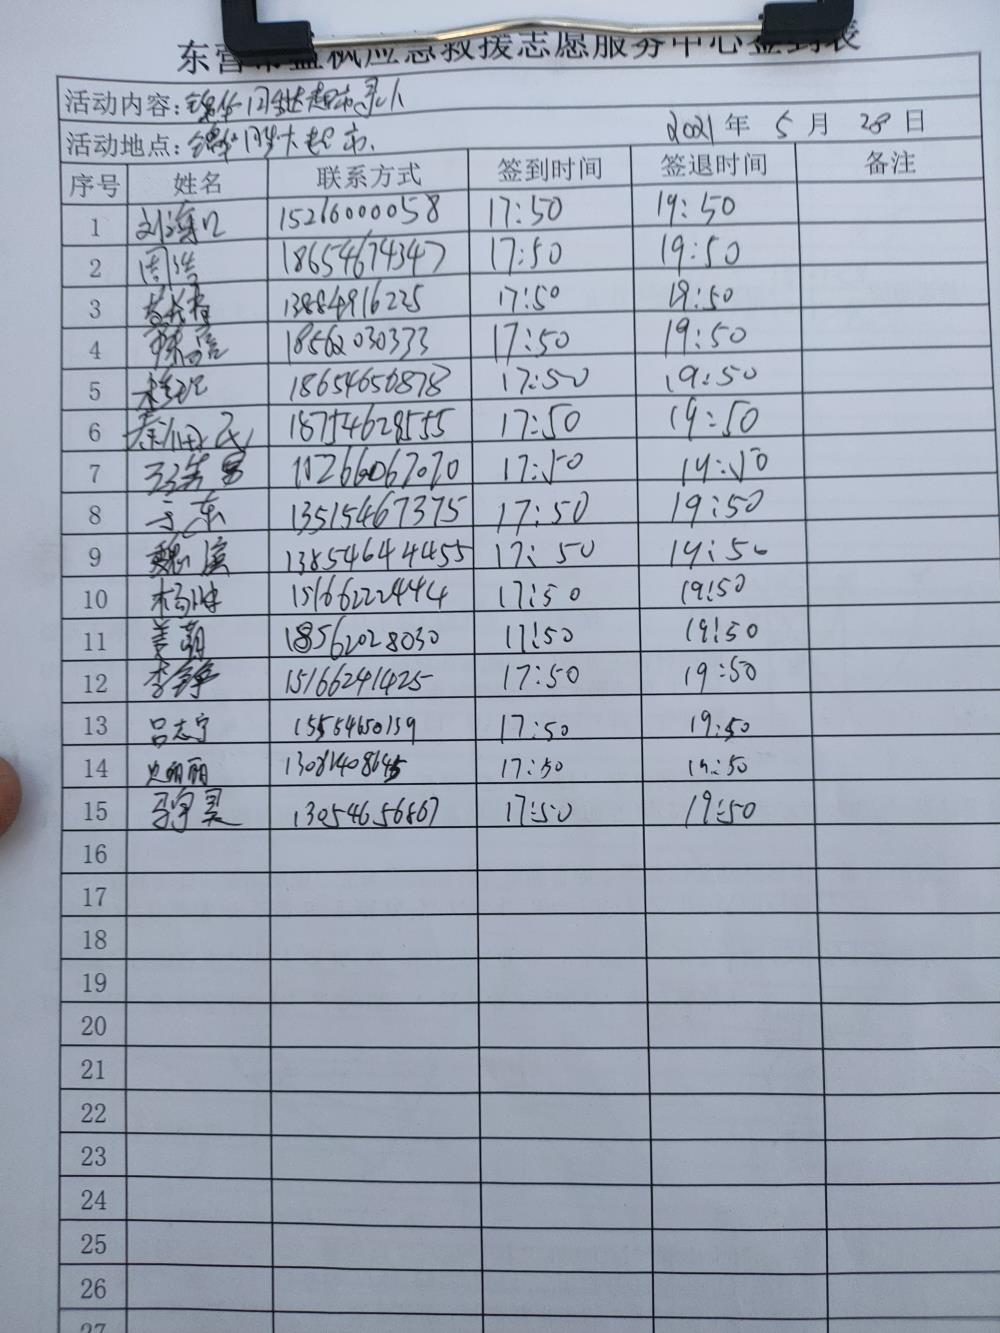 应急救援志愿服务中心签到表
活动内容:
2021年 5月 28日
活动地点:
序号 姓名 联系方式 签到时间 签退时间 备注
1 15216000058 17:50 19:50
2 周浩 18654674347 17:50 19:50
3 13884916225 17:50 19:50
4 18562030333 17:50 19:50
5 18654650878 17:50 19:50
6 18754628555 17:50 19:50
7 17:50 19:50
8 于东 13515467375 17:50 19:50
9 魏滨 13854644455 17:50 19:50
10 杨坤 15166222444 17:50 19:50
11 姜萌 18562028030 17:50 19:50
12 李铮 15166241425 17:50 19:50
13 吕志宁 15554650159 17:50 19:50
14 17:50 19:50
15 13054656867 17:50 19:50
16
17
18
19
20
21
22
23
24
25
26
27